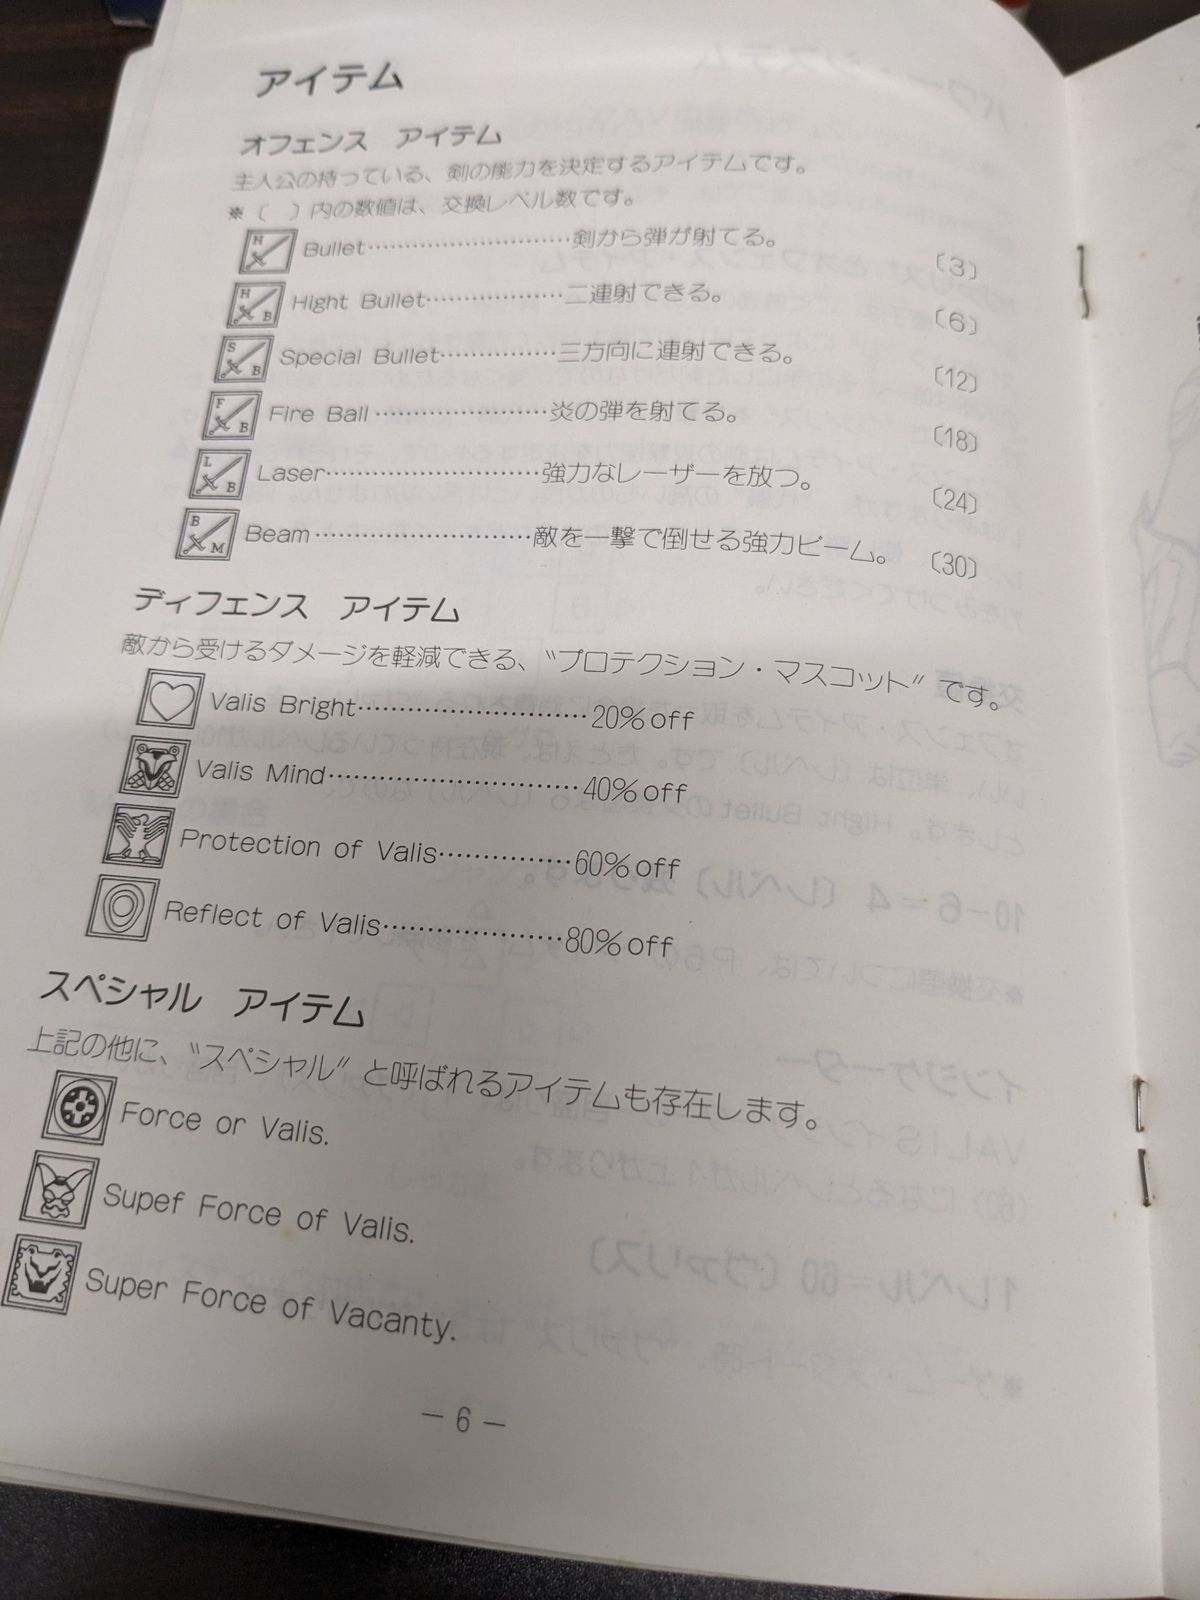 アイテム
オフェンス アイテム
主人公の持っている、剣の能力を決定するアイテムです。
※〔 〕内の数値は、交換レベル数です。
H Bullet……………………剣から弾が射てる。 〔3〕
H B Hight Bullet……………二連射できる。 〔6〕
S B Special Bullet…………三方向に連射できる。 〔12〕
F B Fire Ball…………………炎の弾を射てる。 〔18〕
L B Laser……………………強力なレーザーを放つ。 〔24〕
B M Beam……………………敵を一撃で倒せる強力ビーム。 〔30〕
ディフェンス アイテム
敵から受けるダメージを軽減できる、〝プロテクション・マスコット〟です。
Valis Bright……………………20%off
Valis Mind………………………40%off
Protection of Valis……………60%off
Reflect of Valis…………………80%off
スペシャル アイテム
上記の他に、〝スペシャル〟と呼ばれるアイテムも存在します。
Force or Valis.
Supef Force of Valis.
Super Force of Vacanty.
－6－